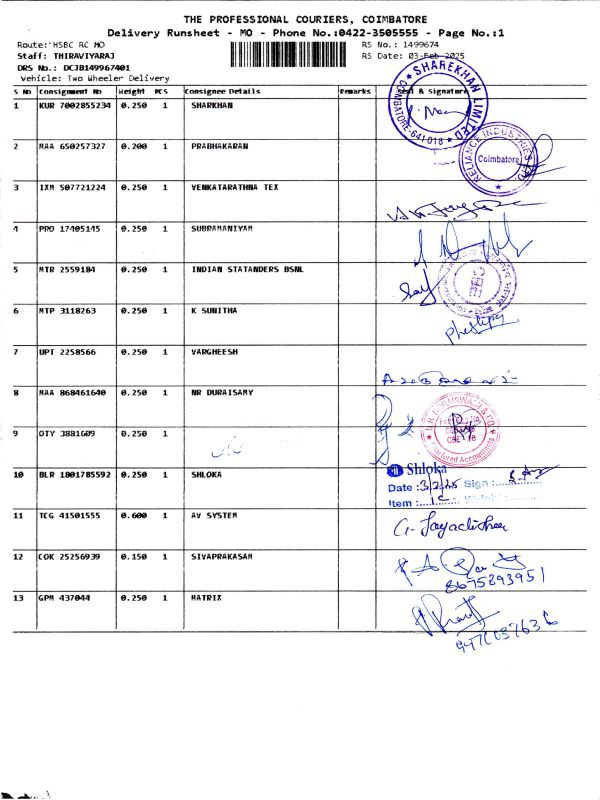 THE PROFESSIONAL COURIERS, COIMBATORE
Delivery Runsheet - MO - Phone No.:0422-3505555 - Page No.:1
Route: HSBC RC MO
RS No.: 1499674
Staff: THIRAVIYARAJ
RS Date: 03-Feb-2025
DRS No.: DCJB149967401
Vehicle: Two Wheeler Delivery
S No Consignment No Weight PCS Consignee Details Remarks & Signature
1 KUR 7002855234 0.250 1 SHARKHAN
SHAREKHAN LIMITED
COIMBATORE-641018
2 MAA 650257327 0.200 1 PRABHAKARAN
RELIANCE INDUSTRIES LTD.
Coimbatore
3 IXM 507721224 0.250 1 VENKATARATHNA TEX
4 PRO 17405145 0.250 1 SUBRAMANIYAM
5 MTR 2559184 0.250 1 INDIAN STATANDERS BSNL
6 MTP 3118263 0.250 1 K SUNITHA
7 UPT 2258566 0.250 1 VARGHEESH
8 MAA 868461640 0.250 1 NR DURAISAMY
9 OTY 3881609 0.250 1
10 BLR 1801785592 0.250 1 SHLOKA
Shloka
Date : 3/2/25 Sign :
Item : Weight :
11 TCG 41501555 0.600 1 AV SYSTEM
12 COK 25256939 0.150 1 SIVAPRAKASAM
8675893951
13 GPM 437044 0.250 1 MATRIX